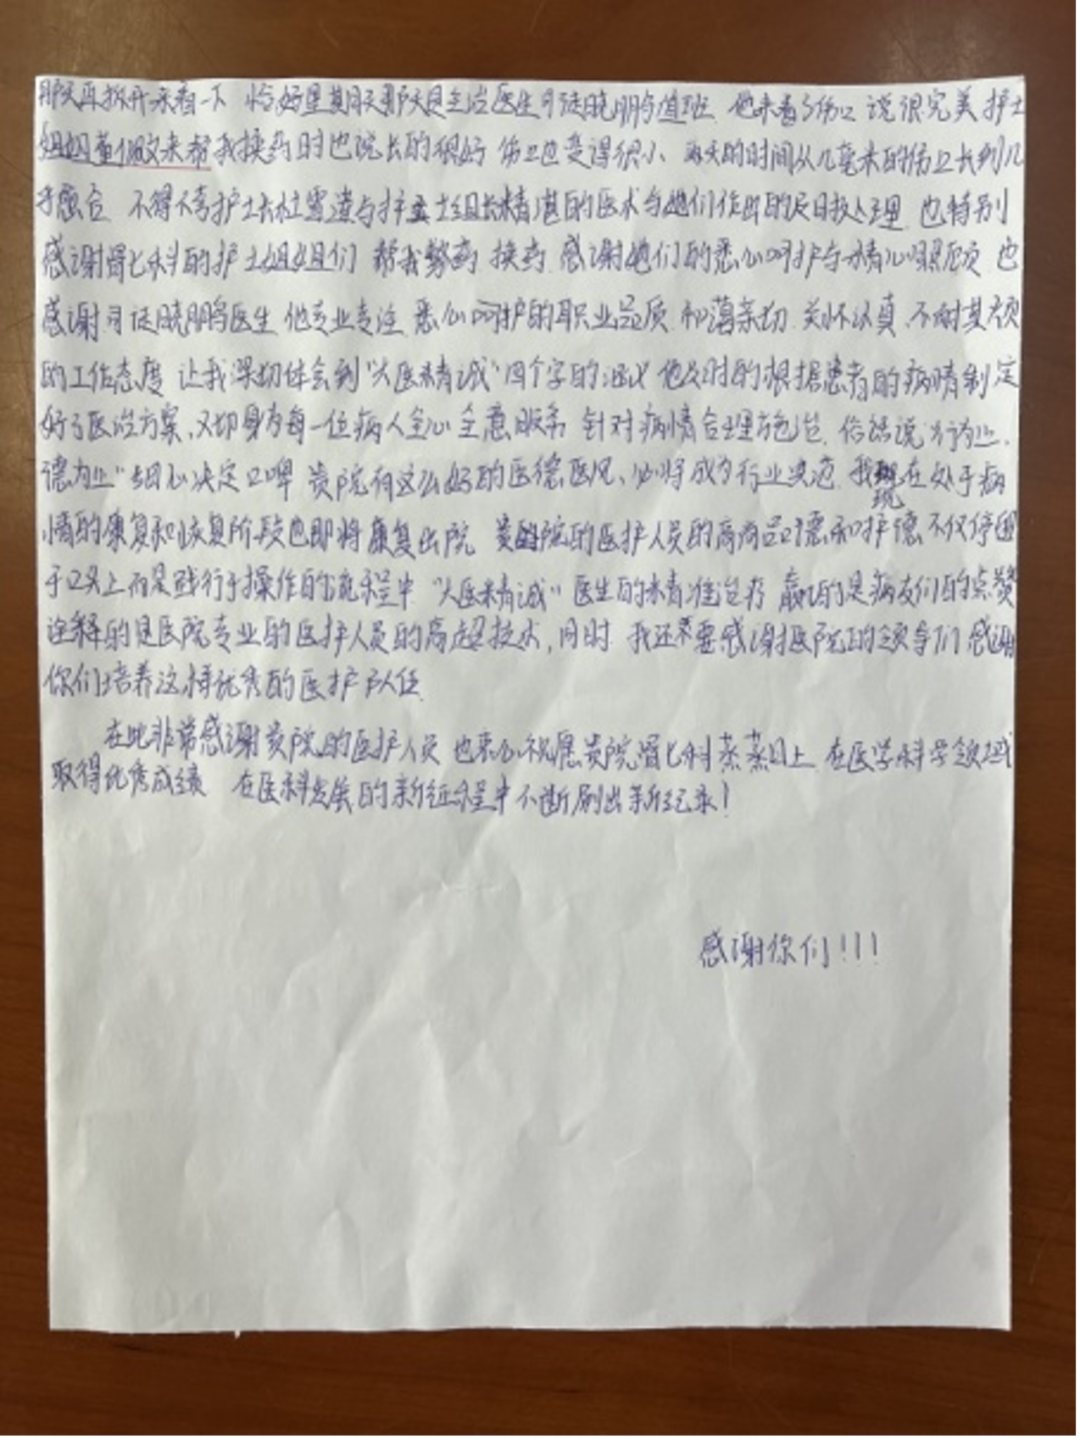 那天再拆开来看一下 恰好星期天那天是主治医生司徒晓鹏值班 他来看了伤口 说很完美 护士
姐姐 来帮我换药时也说长的很好 伤口也变得很小 两天的时间从几毫米的伤口长到几
乎愈合 不得不夸护士长 与护士组长精湛的医术与她们作出的及时处理 也特别
感谢骨七科的护士姐姐们 帮我敷药 换药 感谢她们的悉心呵护与精心照顾 也
感谢司徒晓鹏医生 他专业专注 悉心呵护的职业品质 和蔼亲切 关怀认真 不耐其烦
的工作态度 让我深切体会到“大医精诚”四个字的涵义 他及时的根据患者的病情制定
好了医治方案、又切身为每一位病人全心全意服务 针对病情合理施治. 俗话说“行为业、
德为业”细心决定口啤 贵院有这么好的医德医风、必将成为行业典范 我现在处于病
情的康复和恢复阶段也即将康复出院 贵院的医护人员的高尚品德和护德 不仅停留
于口头上而是践行于操作的流程中 “大医精诚” 医生的精准治疗 赢的是病友们的点赞
诠释的是医院专业的医护人员的高超技术, 同时 我还要感谢医院的领导们 感谢
你们培养这样优秀的医护队伍
在此非常感谢贵院的医护人员 也衷心祝愿贵院骨七科蒸蒸日上 在医学科学领域
取得优秀成绩 在医科发展的新征程中不断刷出新纪录!
感谢你们!!!